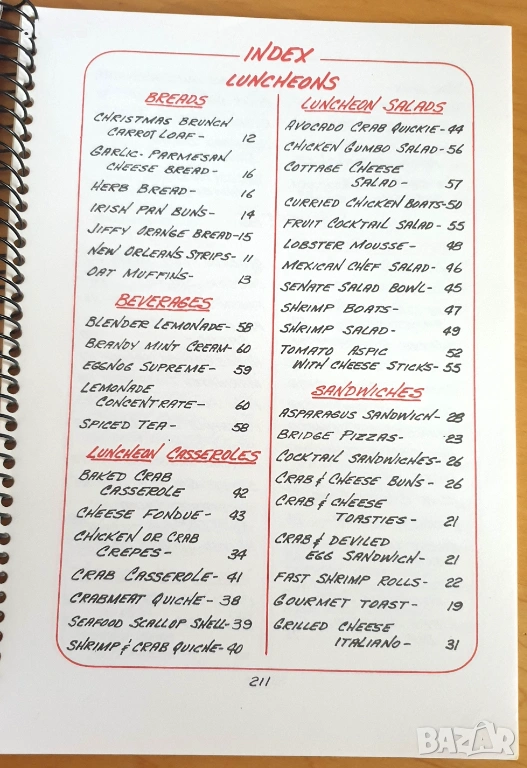 INDEX
LUNCHEONS
BREADS
CHRISTMAS BRUNCH
CARROT LOAF - 12
GARLIC-PARMESAN
CHEESE BREAD - 16
HERB BREAD - 16
IRISH PAN BUNS - 14
JIFFY ORANGE BREAD - 15
NEW ORLEANS STRIPS - 11
OAT MUFFINS - 13
BEVERAGES
BLENDER LEMONADE - 58
BRANDY MINT CREAM - 60
EGGNOG SUPREME - 59
LEMONADE
CONCENTRATE - 60
SPICED TEA - 58
LUNCHEON CASSEROLES
BAKED CRAB
CASSEROLE 42
CHEESE FONDUE - 43
CHICKEN OR CRAB
CREPES - 34
CRAB CASSEROLE - 41
CRABMEAT QUICHE - 38
SEAFOOD SCALLOP SHELL - 39
SHRIMP & CRAB QUICHE - 40
LUNCHEON SALADS
AVOCADO CRAB QUICKIE - 44
CHICKEN GUMBO SALAD - 56
COTTAGE CHEESE
SALAD - 57
CURRIED CHICKEN BOATS - 50
FRUIT COCKTAIL SALAD - 55
LOBSTER MOUSSE - 48
MEXICAN CHEF SALAD - 46
SENATE SALAD BOWL - 45
SHRIMP BOATS - 47
SHRIMP SALAD - 49
TOMATO ASPIC 52
WITH CHEESE STICKS - 55
SANDWICHES
ASPARAGUS SANDWICH - 28
BRIDGE PIZZAS - 23
COCKTAIL SANDWICHES - 26
CRAB & CHEESE BUNS - 26
CRAB & CHEESE
TOASTIES - 21
CRAB & DEVILED
EGG SANDWICH - 21
FAST SHRIMP ROLLS - 22
GOURMET TOAST - 19
GRILLED CHEESE
ITALIANO - 31
211
BAZAR